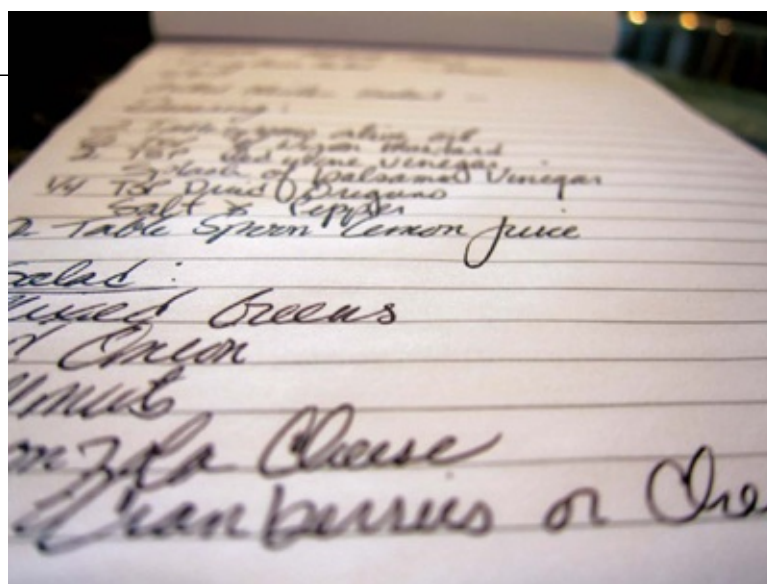 Dressing:
2 Tablespoons olive oil
TSP Dijon Mustard
2 TSP Red Wine Vinegar
Splash of Balsamic Vinegar
1/4 TSP Dried Oregano
Salt & Pepper
2 Table Spoon Lemon juice
Salad:
Mixed Greens
Onion
Cheese
Cranberries or